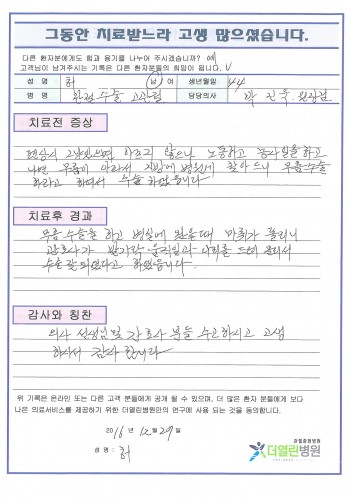 그동안 치료받느라 고생 많으셨습니다.
다른 환자분에게도 힘과 용기를 나누어 주시겠습니까? 예
고객님이 남겨주시는 기록은 다른 환자분들의 희망이 됩니다. V
성 명 허 남 여 생년월일 44
병 명 수술 담당의사 박 진욱 원장님
치료전 증상
평상시 아프지 않으나 노동하고 농사일을 하고
나면 무릎이 아파서 병원에 찾아오니 무릎수술
하라고 하여서 수술 하였습니다
치료후 경과
무릎수술을 하고 병실에 왔을때 마취가 풀리니
간호사가 발가락 움직임과 다리를 드려 본뒤서
수술 잘 되었다고 하였읍니다.
감사와 칭찬
의사 선생님 및 간호사 분들 수고하시고 고생
하셔서 감사 합니다
위 기록은 온라인 또는 다른 고객분들에게 공개 될 수 있으며, 더 많은 환자 분들에게 보다
나은 의료서비스를 제공하기 위한 더열린병원만의 연구에 사용 되는 것을 동의합니다.
2016 년 12 월 29 일
성 명 : 허
더열린병원